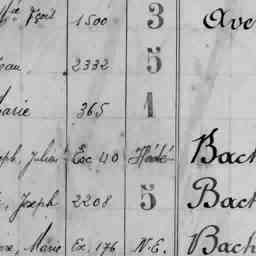 1500 3 Ave
2332 5
Marie 365 1
Julien Exc 40 Bach
Joseph 2208 5 Bach
Marie Ex. 176 N.E. Bach